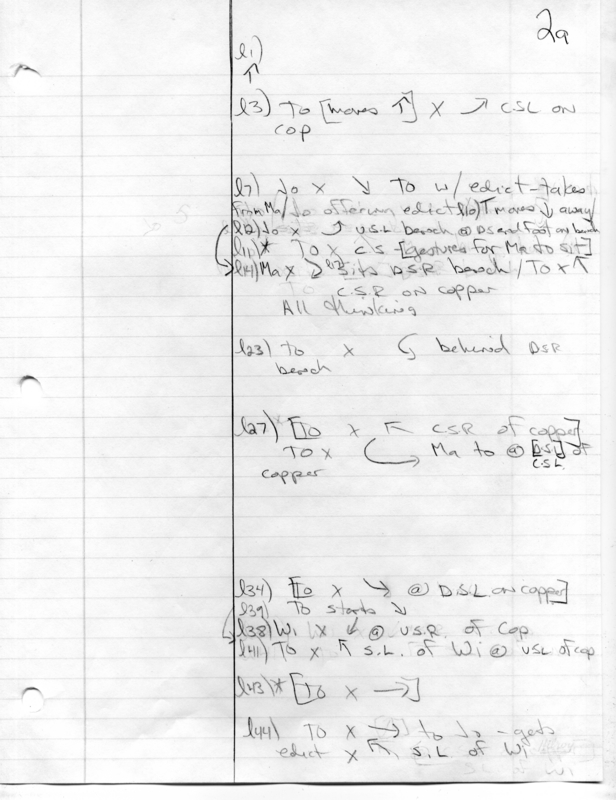 2a
l1)
↑
l3) To [moves ↑] X ↗ CSL on
cop
l7) Jo x ↘ To w/ edict-takes
from Ma/Jo offering edict l10) T moves ↓ away
l12) Jo x ↗ U.S.L bench @ DS end foot on bench
l11)* To x CS [gestures for Ma to sit]
l14) Ma x ↘ sits DSR bench / To x ↑
To C.S.R on copper
All thinking
l23) To x behind DSR
bench
l27)* [To x ↖ CSR of copper]
To x Ma to @ [DSL] of
copper C.S.L.
l34) [To x ↘ @ D.S.L on copper]
l39) To starts ↓
l38) Wi x ↙ @ U.S.R. of Cop
l41) To x ↖ S.L. of Wi @ USL of cop
l43)* [To x →]
l44) To x → to Jo - gets
edict x ↖ S.L of Wi